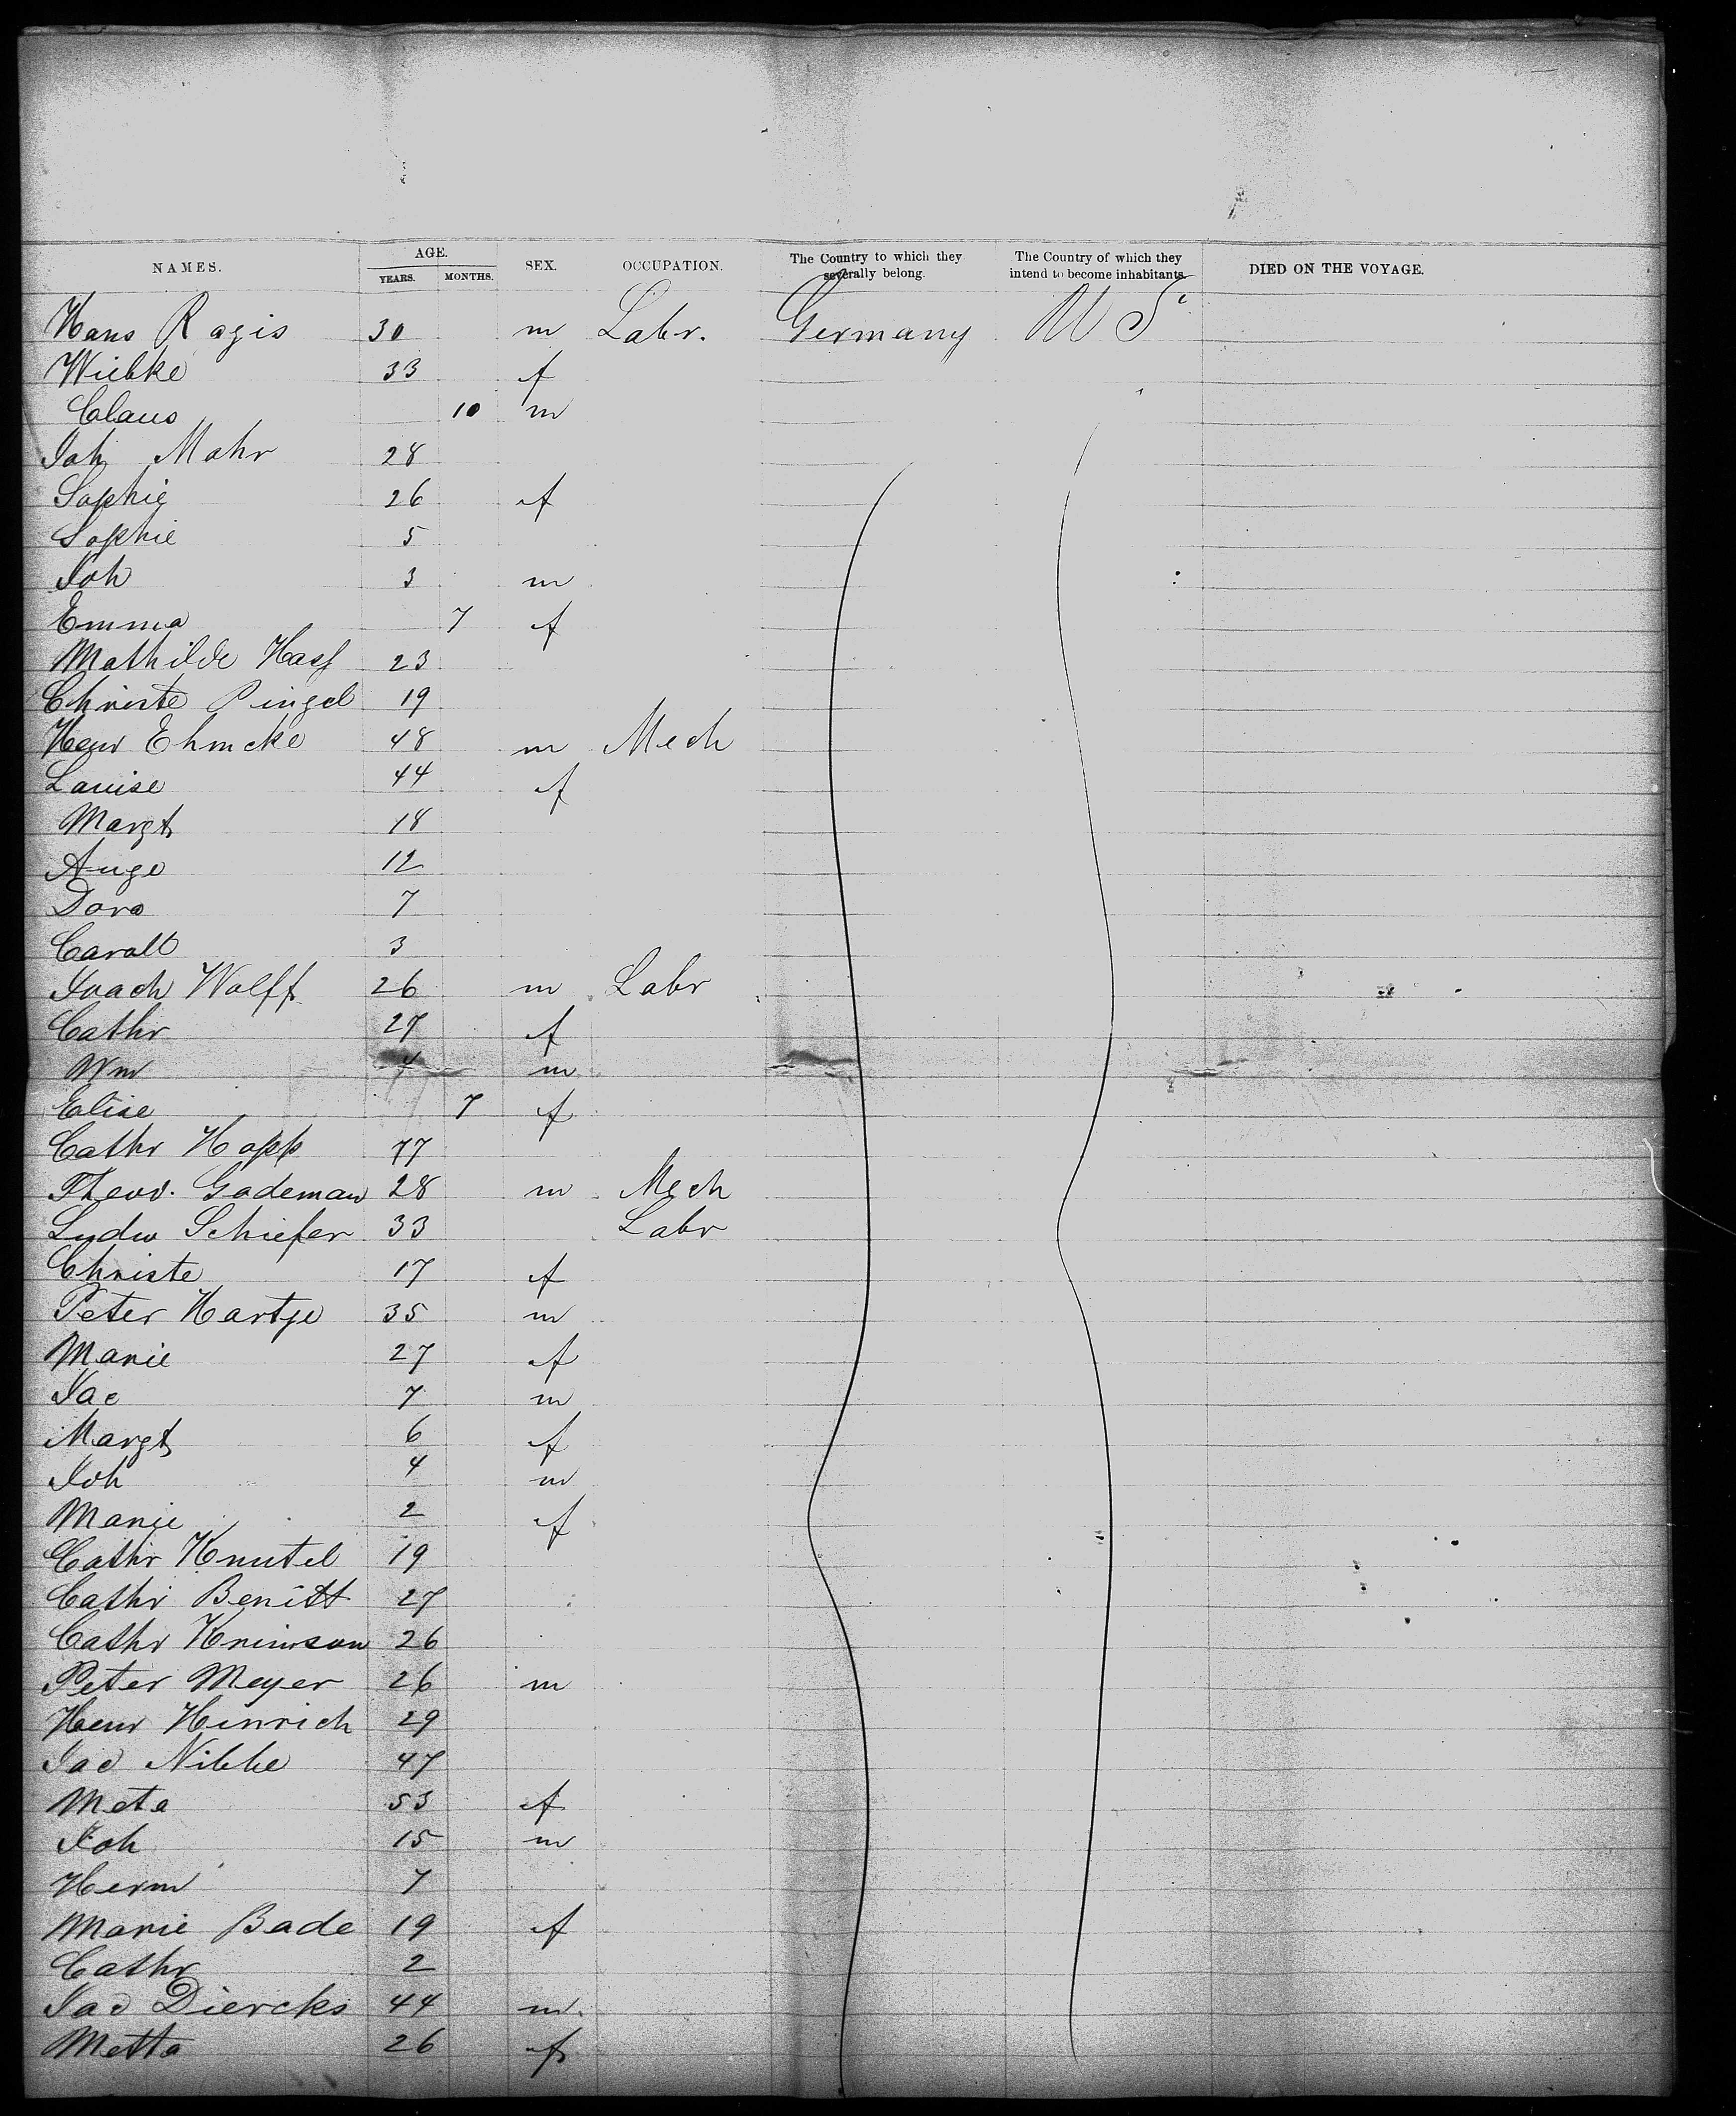 NAMES. AGE. YEARS. MONTHS. SEX. OCCUPATION. The Country to which they severally belong. The Country of which they intend to become inhabitants. DIED ON THE VOYAGE.
Hans Ragis 30 m Labr. Germany U S
Wiebke 33 f
Claus 10 m
Joh Mohr 28
Sophie 26 f
Sophie 5
Joh 3 m
Emma 7 f
Mathilde Hass 23
Christe Pingel 19
Henr Ehmcke 48 m Mech
Louise 44 f
Margt 18
Auge 12
Dora 7
Caralt 3
Joach Wolff 26 m Labr
Cathr 27 f
Wm 4 m
Elise 7 f
Cathr Hopp 77
Theod. Gademan 28 m Mech
Ludw Schiefer 33 Labr
Christe 17 f
Peter Hartje 35 m
Marie 27 f
Jac 7 m
Margt 6 f
Joh 4 m
Marie 2 f
Cathr Knutel 19
Cathr Benitt 27
Cathr 26
Peter Meyer 26 m
Henr Hinrich 29
Jac Nibbe 47
Meta 53 f
Joh 15 m
Herm 7
Marie Bade 19 f
Cathr 2
Jac Diercks 44 m
Metta 26 f